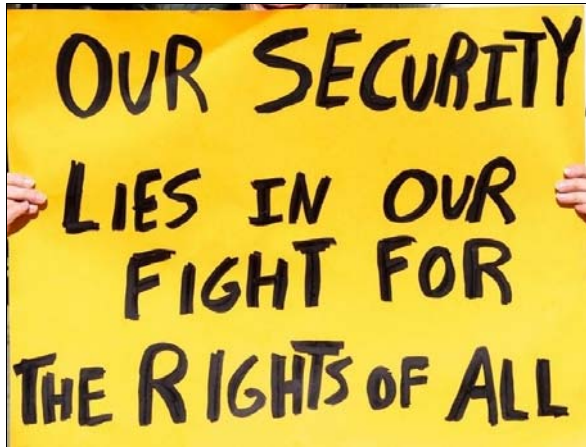 OUR SECURITY
LIES IN OUR
FIGHT FOR
THE RIGHTS OF ALL